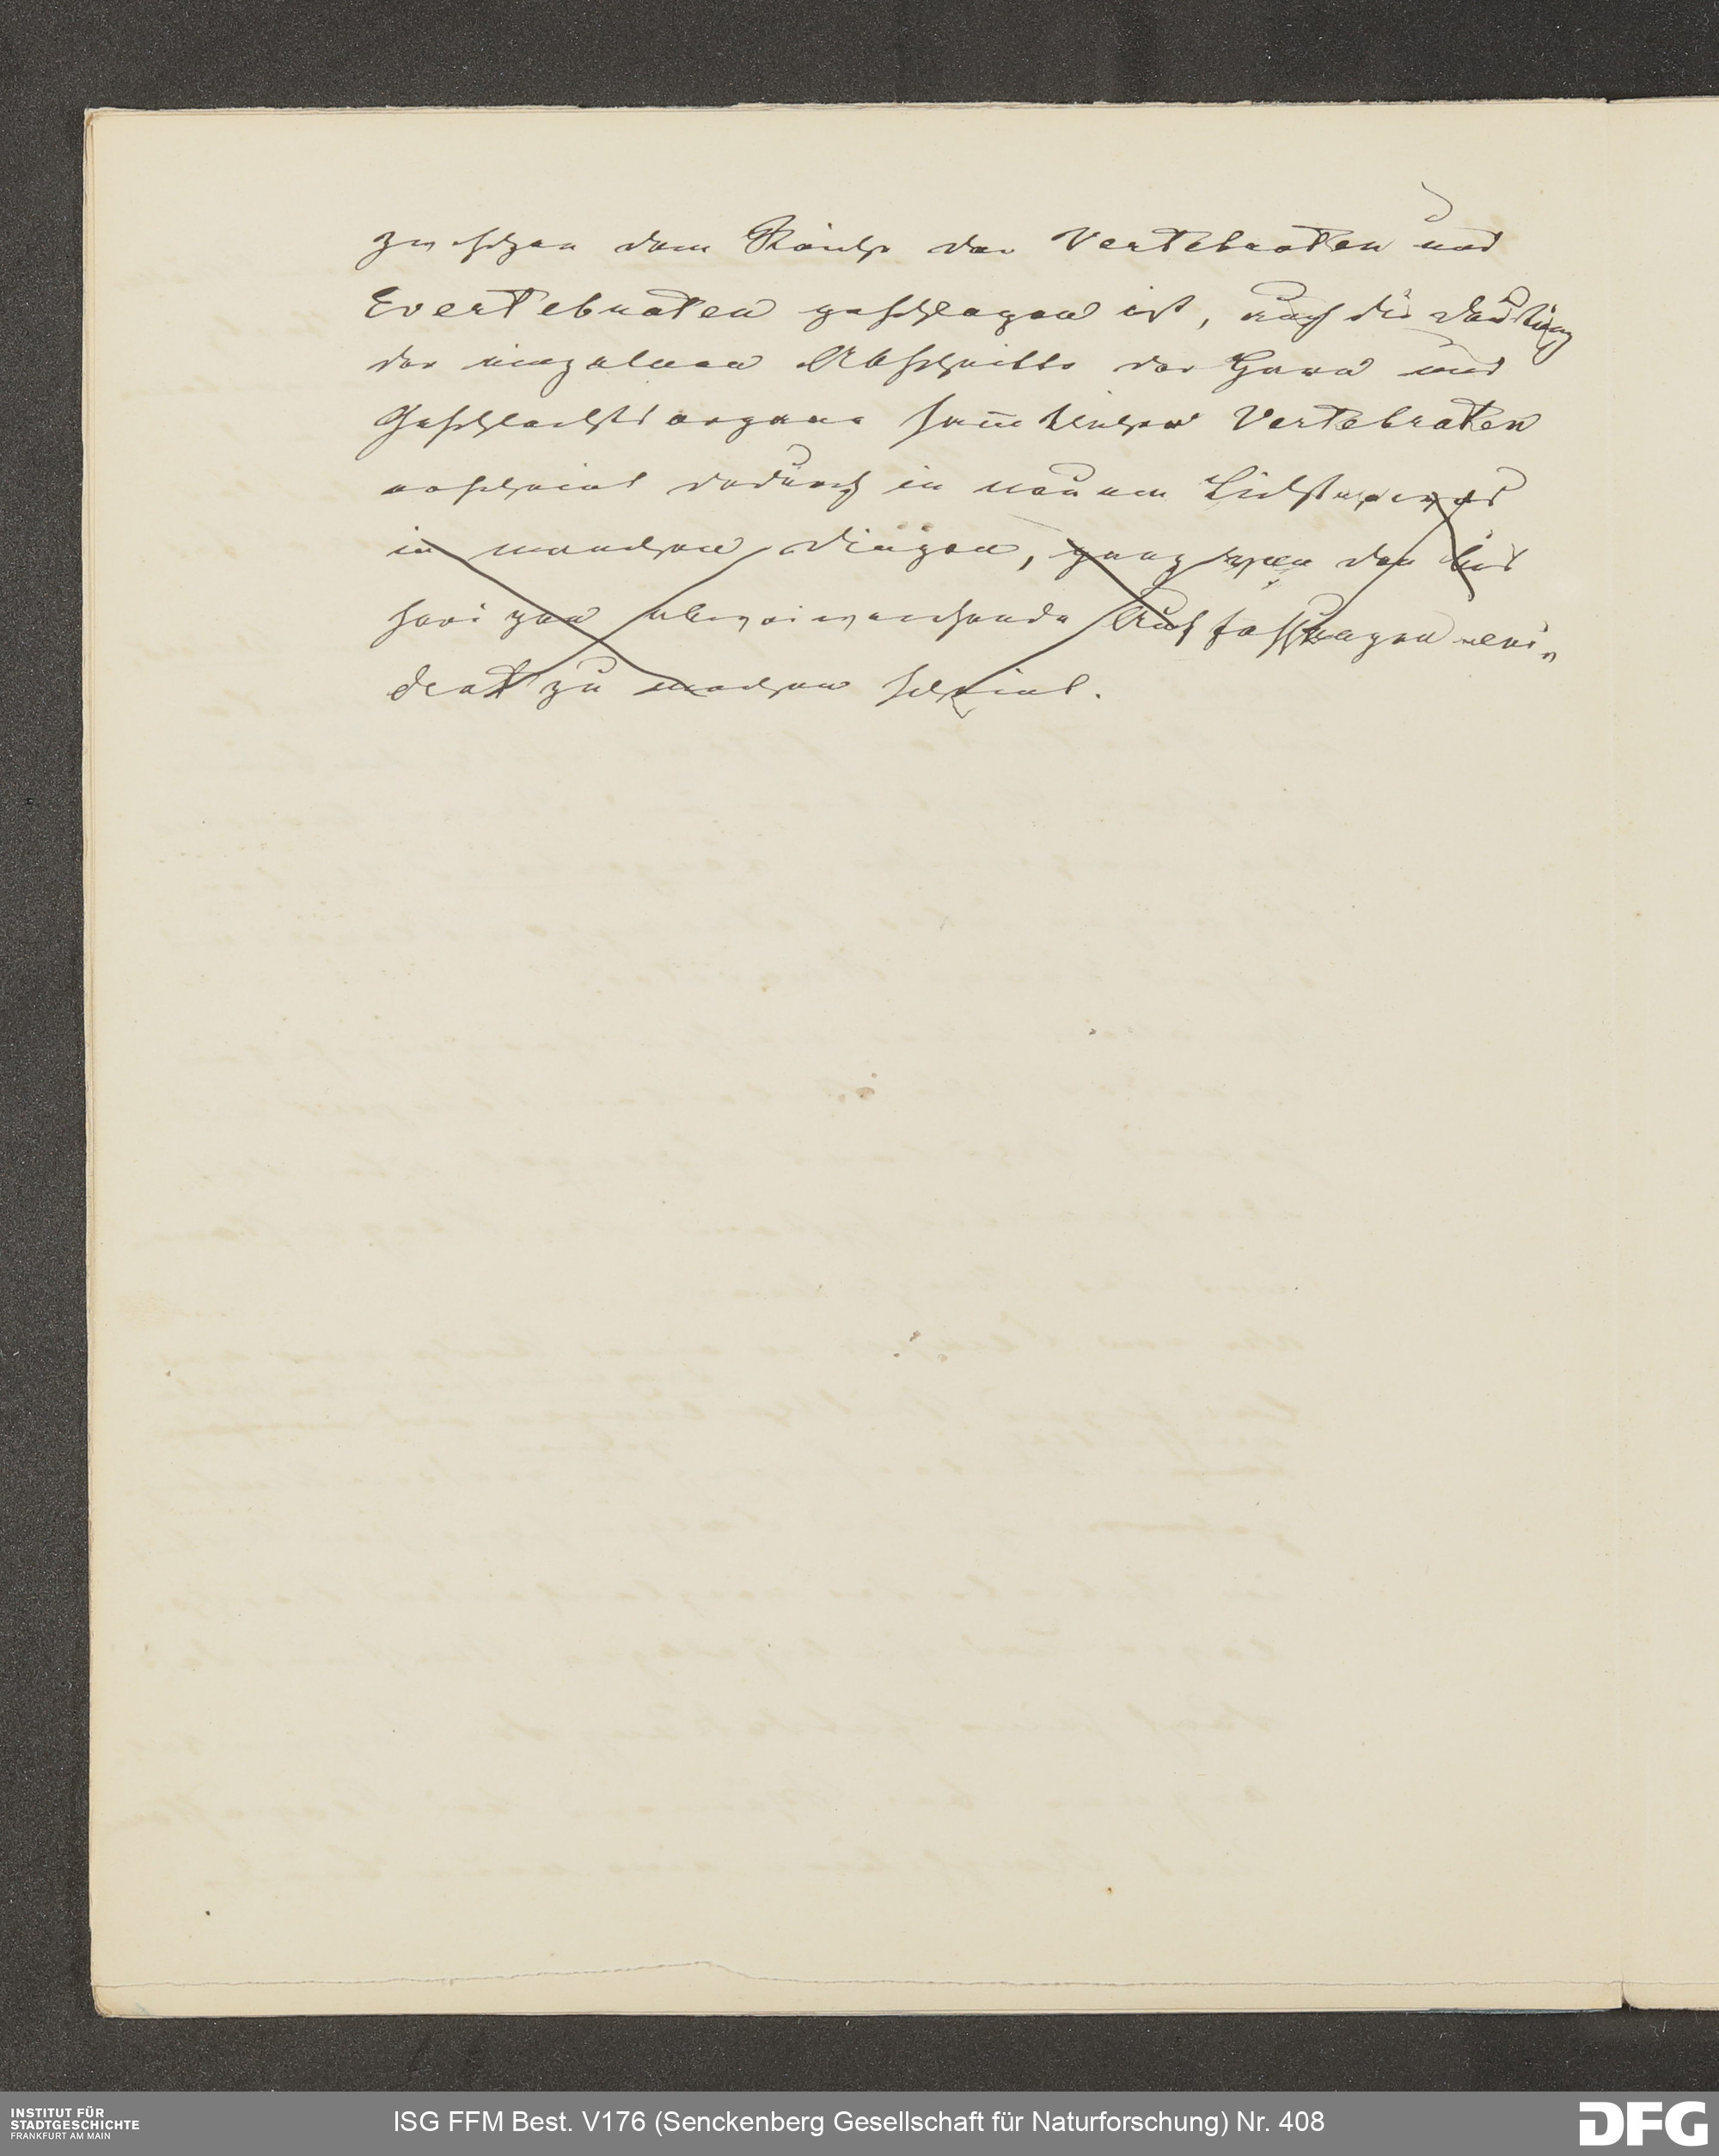 zwischen dem Reich der Vertebraten und
Evertebraten geschlagen ist, auch die Deutung
der einzelnen Abschnitte der Harn und
Geschlechtsorgane sam̅tlicher Vertebraten
erscheint dadurch in neuem Licht
in manchen Dingen, ganz von den bis
herigen abweichende Auffassungen evi-
dent zu machen scheint.
INSTITUT FÜR
STADTGESCHICHTE
FRANKFURT AM MAIN
ISG FFM Best. V176 (Senckenberg Gesellschaft für Naturforschung) Nr. 408
DFG